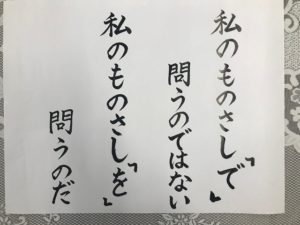 私のものさし『で』
問うのではない
私のものさし『を』
問うのだ